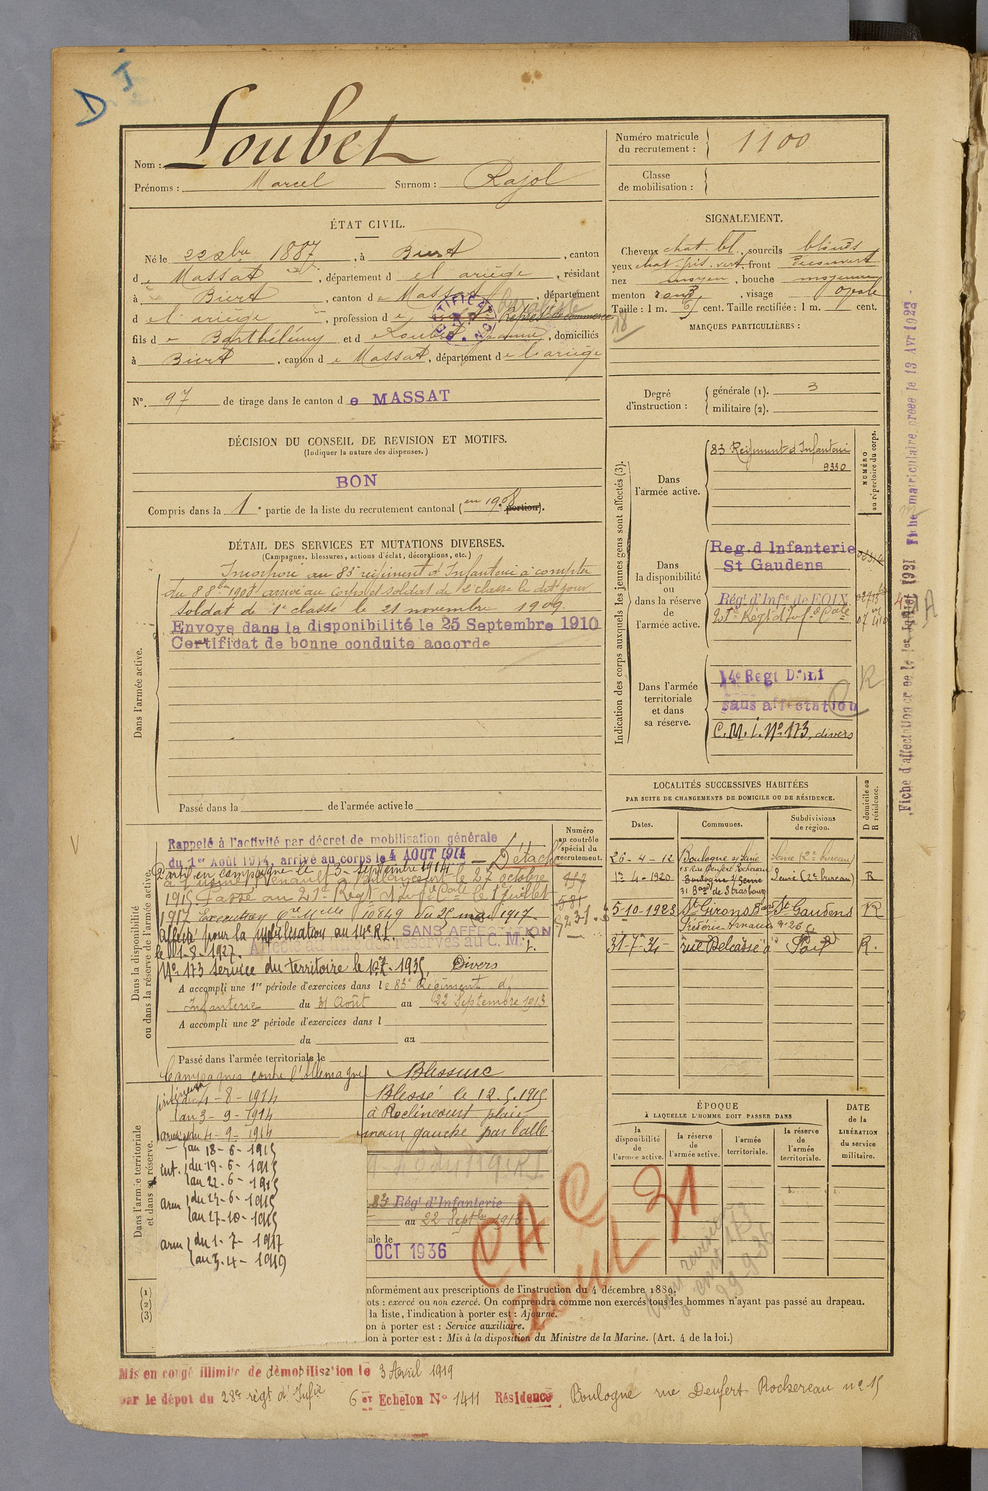 D I
Nom : Loubet
Prénoms : Marcel Surnom : Rajol
Numéro matricule du recrutement : 1100
Classe de mobilisation :
ÉTAT CIVIL.
Né le 22 xbre 1887, à Biert, canton
de Massat, département de l'ariège, résidant
à Biert, canton de Massat, département
de l'ariège, profession de
fils de Barthélémy et de Loubet Jeanne, domiciliés
à Biert, canton de Massat, département de l'ariège
N°. 97 de tirage dans le canton de MASSAT
DÉCISION DU CONSEIL DE REVISION ET MOTIFS.
(Indiquer la nature des dispenses.)
BON
Compris dans la 1e partie de la liste du recrutement cantonal (en 1908 portion).
SIGNALEMENT.
Cheveux chat. bl., sourcils blonds
yeux chat. gris. vert, front découvert
nez moyen, bouche moyenne
menton rond, visage ovale
Taille : 1 m. cent. Taille rectifiée : 1 m. cent.
MARQUES PARTICULIÈRES :
Degré d'instruction :
générale (1). 3
militaire (2).
DÉTAIL DES SERVICES ET MUTATIONS DIVERSES.
(Campagnes, blessures, actions d'éclat, décorations, etc.)
Dans l'armée active.
Incorporé au 83e régiment d'Infanterie à compter
du 8 8bre 1908, arrivé au corps et soldat de 2e classe le dit jour
Soldat de 1e classe le 21 novembre 1909
Envoyé dans la disponibilité le 25 Septembre 1910
Certificat de bonne conduite accordé
Passé dans la de l'armée active le
Indication des corps auxquels les jeunes gens sont affectés (3).
NUMÉRO au répertoire du corps.
Dans l'armée active.
83 Régiment d'Infanterie
9330
Dans la disponibilité ou dans la réserve de l'armée active.
Reg. d Infanterie
St Gaudens
Rég' d'Infie de FOIX
21e Régt d'Inf. Cole
Dans l'armée territoriale et dans sa réserve.
14e Regt D'Inf
sans affectation
C. M. I. N° 173, divers
R
Fiche d'affectation créée le 1er Juillet 1921 Fiche matriculaire créée le 13 Avr 1922
Dans la disponibilité ou dans la réserve de l'armée active.
Numéro au contrôle spécial du recrutement.
Rappelé à l'activité par décret de mobilisation générale
du 1er Août 1914, arrivé au corps le 4 AOUT 1914 — Détaché
Parti en campagne le 5 septembre 1914
à l'usine Renault à Billancourt le 27 octobre
1915 Passé au 21e Régt d'Inf. Cole le 1er juillet
1917 Exécution Cre Mlle 10849 du 2 mai 1917.
Affecté pour la mobilisation au 14e R.I. SANS AFFECTATION
le 1-8-1927.
N° 173 service du territoire le 1-7-1935, Divers
A accompli une 1re période d'exercices dans le 83e Régiment d'
Infanterie du 31 Août au 22 Septembre 1913
A accompli une 2e période d'exercices dans l
du au
Passé dans l'armée territoriale le
LOCALITÉS SUCCESSIVES HABITÉES
PAR SUITE DE CHANGEMENTS DE DOMICILE OU DE RÉSIDENCE.
Dates. Communes. Subdivisions de région. D domicile ou R résidence.
26-4-12 Boulogne s/ Seine Seine (2e bureau)
15 Rue Denfert Rochereau
1-4-1920 Boulogne s/ Seine Seine (2e bureau) R
31 Bard de Strasbourg
5-10-1923 St Girons St Gaudens R
31-7-34 rue Delcassé R.
Dans l'armée territoriale et dans sa réserve.
Campagnes contre l'Allemagne
du 4-8-1914
au 3-9-1914
du 4-9-1914
au 18-6-1915
int. du 19-6-1915
au 22-6-1915
arm du 23-6-1915
au 27-10-1915
arm du 1-7-1917
au 3-4-1919
Blessure
Blessé le 12.5.1915
à Roclincourt plaie
main gauche par balle
83 Rég' d'Infanterie
au 22 Septbre 1913
OCT 1936
CAC
aout 31
ÉPOQUE
À LAQUELLE L'HOMME DOIT PASSER DANS
la disponibilité de l'armée active.
la réserve de l'armée active.
l'armée territoriale.
la réserve de l'armée territoriale.
DATE de la LIBÉRATION du service militaire.
(1)
(2)
(3)
nformément aux prescriptions de l'instruction du 4 décembre 1889.
ots : exercé ou non exercé. On comprendra comme non exercés tous les hommes n'ayant pas passé au drapeau.
la liste, l'indication à porter est : Ajourné.
on à porter est : Service auxiliaire.
on à porter est : Mis à la disposition du Ministre de la Marine. (Art. 4 de la loi.)
Mis en congé illimité de démobilisation le 3 Avril 1919
par le dépot du 28e régt d'Infie 6 er Echelon N° 1411 Résidence, Boulogne rue Denfert Rochereau n° 15